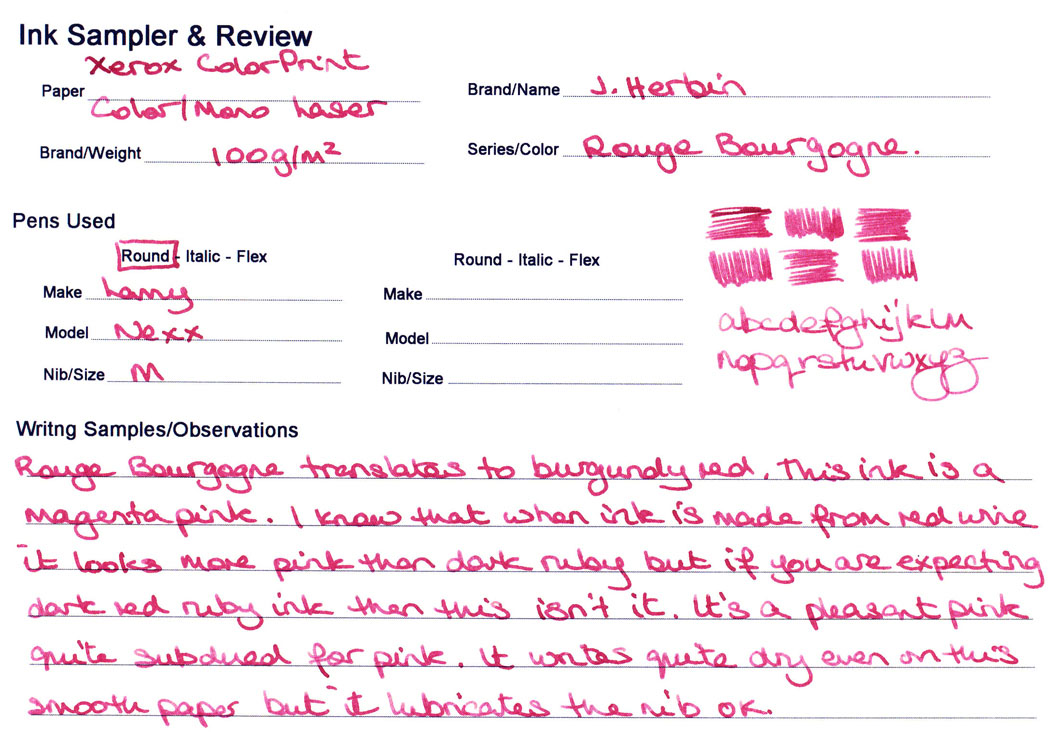 Ink Sampler & Review
Xerox ColorPrint
Paper
Color/Mono Laser
Brand/Name J. Herbin
Brand/Weight 100g/m²
Series/Color Rouge Bourgogne.
Pens Used
Round - Italic - Flex
Round - Italic - Flex
Make Lamy
Make
Model Nexx
Model
Nib/Size M
Nib/Size
abcdefghijklm
nopqrstuvwxyz
Writng Samples/Observations
Rouge Bourgogne translates to burgundy red. This ink is a
magenta pink. I know that when ink is made from red wine
it looks more pink than dark ruby but if you are expecting
dark red ruby ink then this isn't it. It's a pleasant pink
quite subdued for pink. It writes quite dry even on this
smooth paper but it lubricates the nib ok.